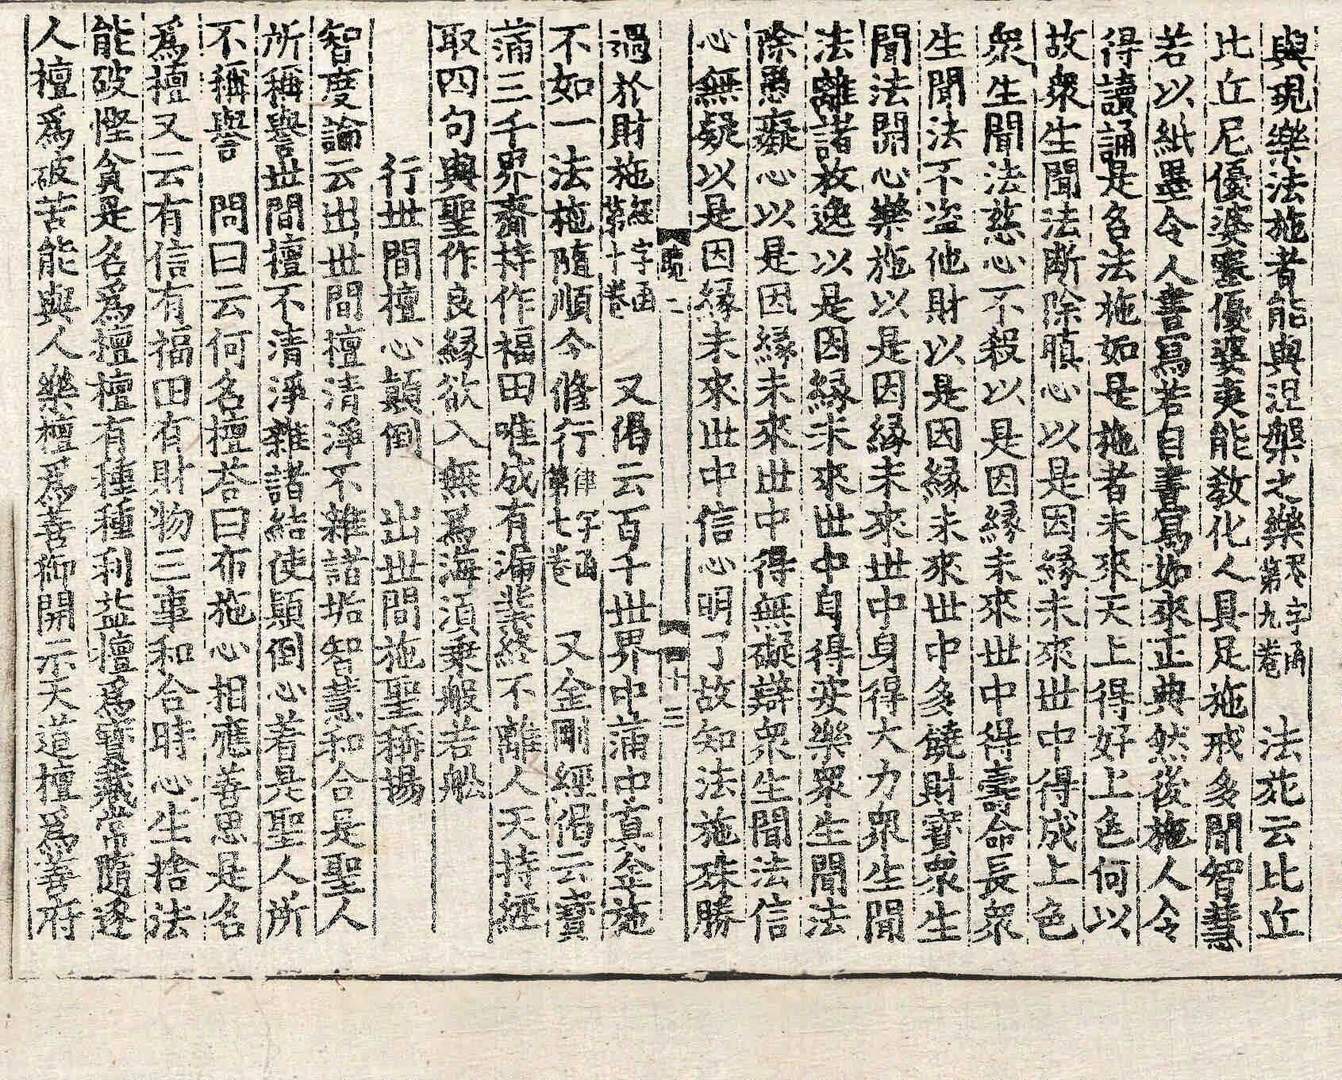 與現樂法施者能與涅槃之樂 字函第九卷 法施云比丘
比丘尼優婆塞優婆夷能教化人具足施戒多聞智慧
若以紙墨令人書寫若自書寫如來正典然後施人令
得讀誦是名法施如是施者未來天上得好上色何以
故衆生聞法斷除瞋心以是因緣未來世中得成上色
衆生聞法慈心不殺以是因緣未來世中得壽命長衆
生聞法不盗他財以是因緣未來世中多饒財寶衆生
聞法開心樂施以是因緣未來世中身得大力眾生聞
法離諸放逸以是因緣未來世中身得安樂眾生聞法
除愚癡心以是因緣未來世中得無礙辯衆生聞法信
心無疑以是因緣未來世中信心明了故知法施殊勝
覽二 四十三
過於財施 經字函第十卷 又偈云百千世界中蒲中真金施
不如一法施隨順今修行 律字函第七卷 又金剛經偈云寶
蒲三千界齎持作福田唯成有漏業終不離人天持經
取四句與聖作良緣欲入無爲海須乗般若舩
行世間檀心顛倒 出世間施聖稱揚
智度論云出世間檀清淨不雜諸垢智慧和合是聖人
所稱譽世間檀不清淨雜諸結使顛倒心着是聖人所
不稱譽 問曰云何名檀荅曰布施心相應善思是名
爲檀又云有信有福田有財物三事和合時心生捨法
能破慳貪是名爲檀檀有種種利益檀爲寶藏常隨逐
人檀爲破苦能與人樂檀爲善御開示天道檀爲善府